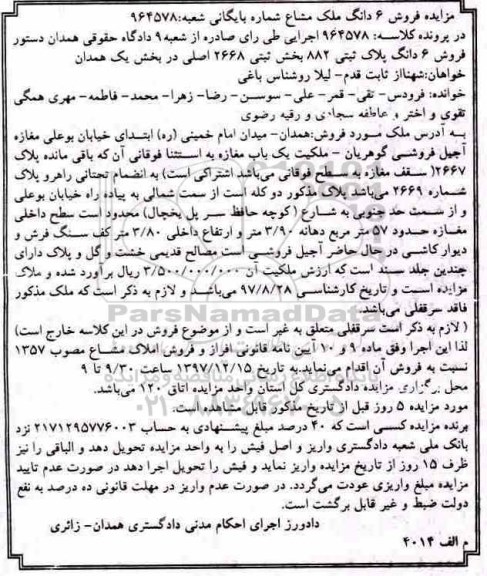 مزایده فروش ۶ دانگ ملک مشاع شماره بایگانی شعبه:۹۶۴۵۷۸
در پرونده کلاسه: ۹۶۴۵۷۸ اجرایی طی رای صادره از شعبه ۹ دادگاه حقوقی همدان دستور
فروش ۶ دانگ پلاک ثبتی ۸۸۲ بخش ثبتی ۲۶۶۸ اصلی در بخش یک همدان
خواهان:شهناز ثابت قدم- لیلا روشناس باغی
خوانده: فرودس- تقی- قمر- علی- سوسن- رضا- زهرا- محمد- فاطمه- مهری همگی
تقوی و اختر و عاطفه سجادی و رقیه رضوی
به آدرس ملک مورد فروش:همدان- میدان امام خمینی (ره) ابتدای خیابان بوعلی مغازه
آجیل فروشی گوهریان – ملکیت یک باب مغازه به استثنا فوقانی آن که باقی مانده پلاک
۲۶۶۷( سقف مغازه به سطح فوقانی می‌باشد اشتراکی است) به انضمام تحتانی راهرو پلاک
شماره ۲۶۶۹ می‌باشد پلاک مذکور دو کله است از سمت شمالی به پیاده راه خیابان بوعلی
و از سمت حد جنوبی به شارع ( کوچه حافظ سر پل یخچال) محدود است سطح داخلی
مغازه حدود ۵۷ متر مربع دهانه ۳/۹۰ متر و ارتفاع داخلی ۳/۸۰ متر کف سنگ فرش و
دیوار کاشی در حال حاضر آجیل فروشی است مصالح قدیمی خشت و گل و پلاک دارای
چندین جلد سند است که ارزش ملکیت آن ۳/۵۰۰/۰۰۰/۰۰۰ ریال برآورد شده و ملاک
مزایده است و تاریخ کارشناسی ۹۷/۸/۲۸ می‌باشد و لازم به ذکر است که ملک مذکور
فاقد سرقفلی می‌باشد.
ParsNamadData
( لازم به ذکر است سرقفلی متعلق به غیر است و از موضوع فروش در این کلاسه خارج است)
لذا این اجرا وفق ماده ۹ و ۱۰ آیین نامه قانونی افراز و فروش املاک مشاع مصوب ۱۳۵۷
نسبت به فروش آن اقدام می‌نماید به تاریخ ۱۳۹۷/۱۲/۱۵ ساعت ۹/۳۰ تا ۹
محل برگزاری مزایده دادگستری کل استان واحد مزایده اتاق ۱۲۰ می‌باشد.
مورد مزایده ۵ روز قبل از تاریخ مذکور قابل مشاهده است.
برنده مزایده کسی است که ۴۰ درصد مبلغ پیشنهادی به حساب ۲۱۷۱۲۹۵۷۷۶۰۰۳ نزد
بانک ملی شعبه دادگستری واریز و اصل فیش را به واحد مزایده تحویل دهد و الباقی را نیز
ظرف ۱۵ روز از تاریخ مزایده واریز نماید و فیش را تحویل اجرا دهد در صورت عدم تایید
مزایده مبلغ واریزی عودت می‌گردد. در صورت عدم واریز در مهلت قانونی ده درصد به نفع
دولت ضبط و غیر قابل برگشت است.
دادورز اجرای احکام مدنی دادگستری همدان- زائری
م الف ۴۰۱۴